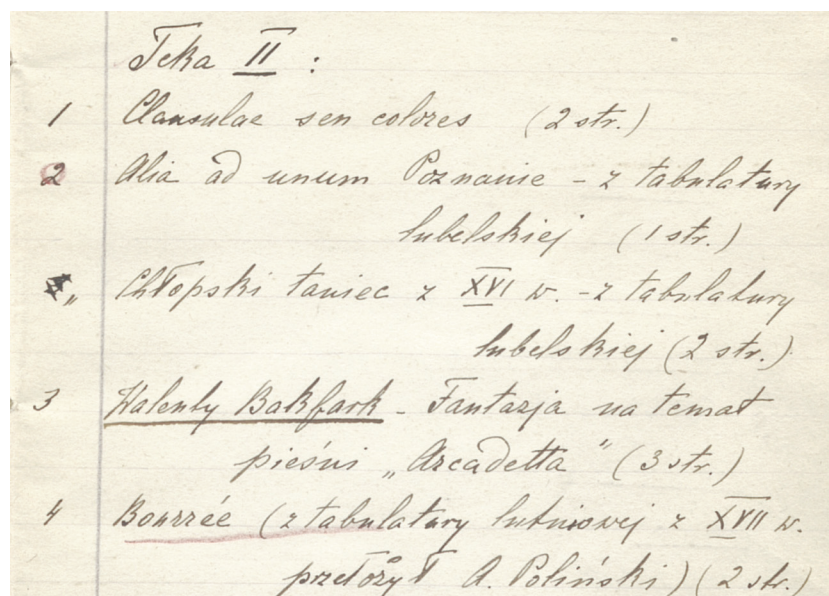 Teka II :
1 Clausulae seu colores (2 str.)
2 Alia ad unum Poznanie - z tabulatury
lubelskiej (1 str.)
„ Chłopski taniec z XVI w. - z tabulatury
lubelskiej (2 str.)
3 Walenty Bakfark - Fantazja na temat
pieśni „Arcadetta" (3 str.)
4 Bourrée (z tabulatury lutniowej z XVII w.
przełożył A. Poliński) (2 str.)